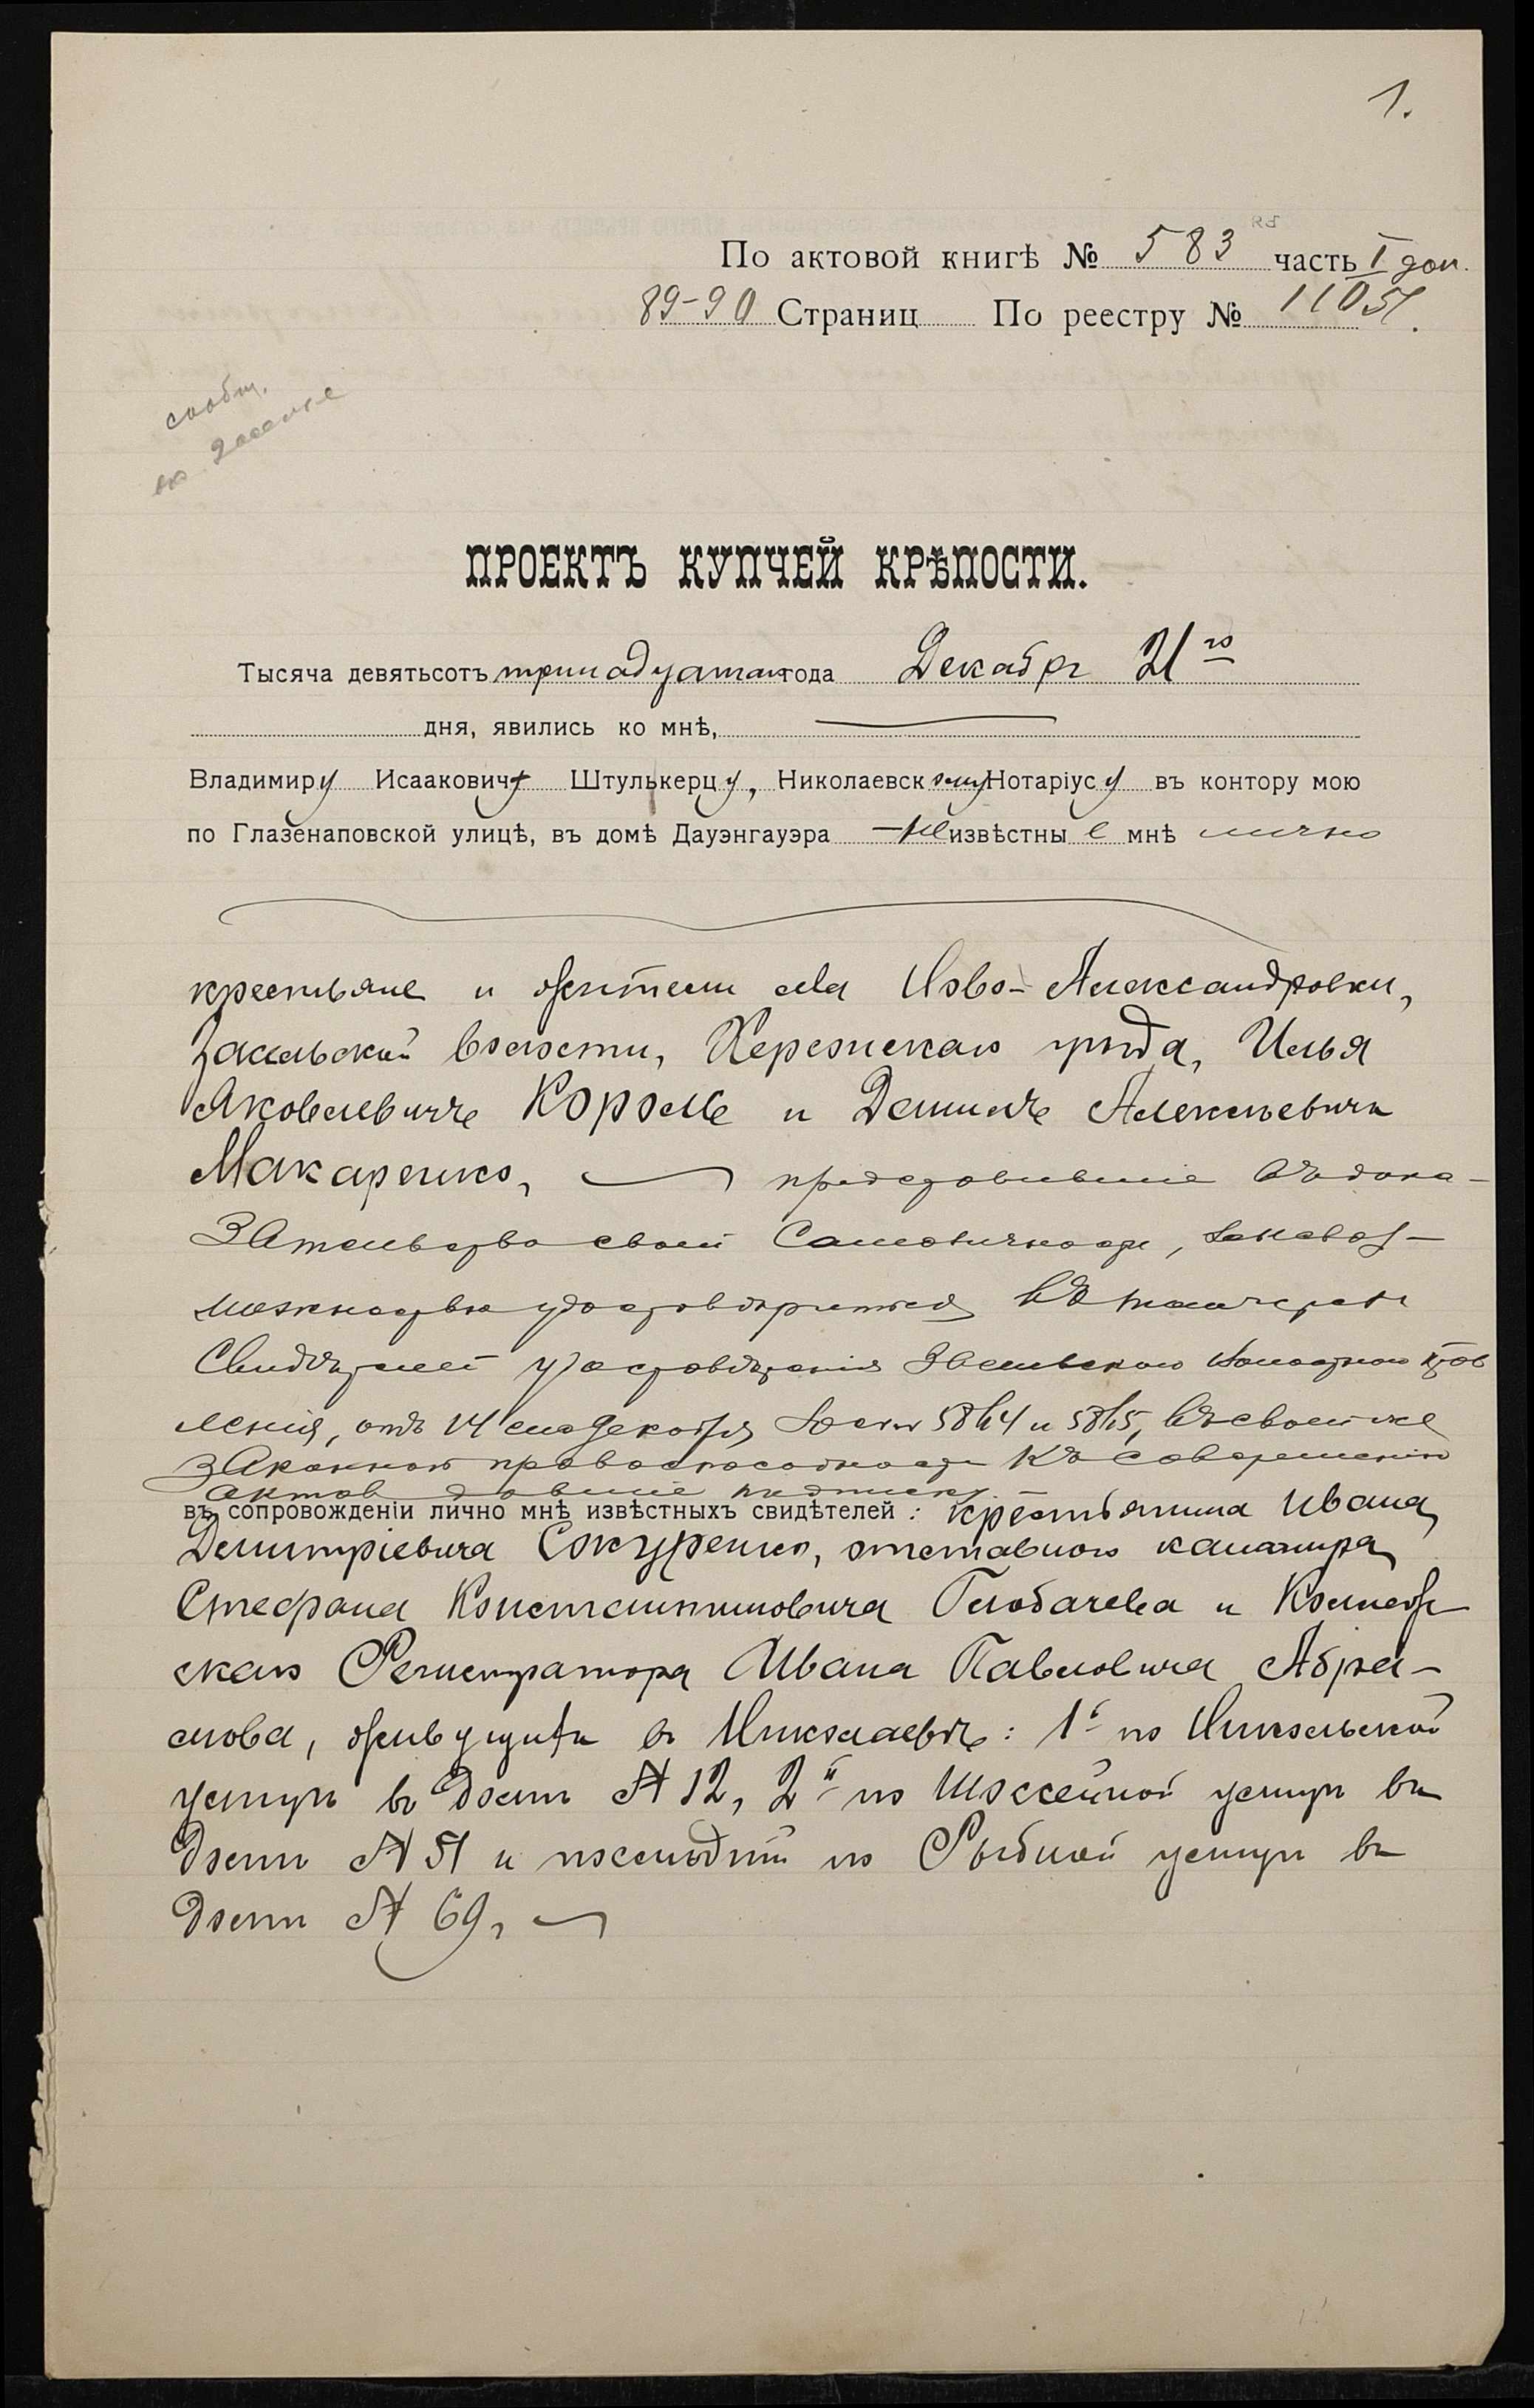 1.
По актовой книгѣ № 583 часть I доп.
89-90 Страниц По реестру № 11051.
сообщ.
ПРОЕКТЪ КУПЧЕЙ КРѢПОСТИ.
Тысяча девятьсотъ тринадцатаго года Декабря 21го
дня, явились ко мнѣ,
Владимиру Исааковичу Штулькерцу, Николаевскому Нотаріусу въ контору мою
по Глазенаповской улицѣ, въ домѣ Дауэнгауэра – неизвѣстные мнѣ лично
крестьяне и жители села Ново-Александровки,
Засельской волости, Херсонскаго уѣзда, Илья
Яковлевичъ Король и Даніилъ Алексѣевичъ
Макаренко, представившіе въ дока-
зательство своей самоличности, за невоз-
можностью удостовѣриться въ томъ чрезъ
свидѣтелей удостовѣренія Засельскаго Волостного Прав
ленія, отъ 14 сего Декабря за №№ 5844 и 5845, въ своей же
законной правоспособности къ совершенію
актовъ давшіе подписку
въ сопровожденіи лично мнѣ извѣстныхъ свидѣтелей: крестьянина Ивана
Димитріевича Сокуренко, отставного канонира
Стефана Константиновича Глобачева и Коллеж-
скаго Регистратора Ивана Павловича Абра-
мова, живущихъ въ Николаевѣ: 1й по Никольской
улицѣ въ домѣ № 12, 2й по Шоссейной улицѣ въ
домѣ № 51 и послѣдній по Рыбной улицѣ въ
домѣ № 69,